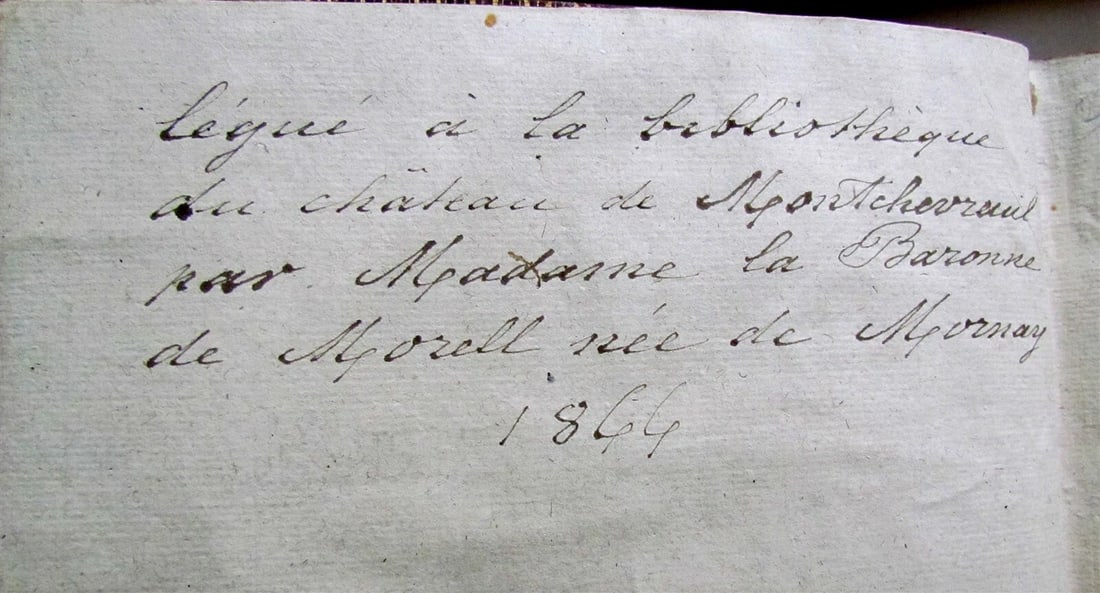 légué à la bibliothèque
du château de Montchevreuil
par Madame la Baronne
de Morell née de Mornay
1844